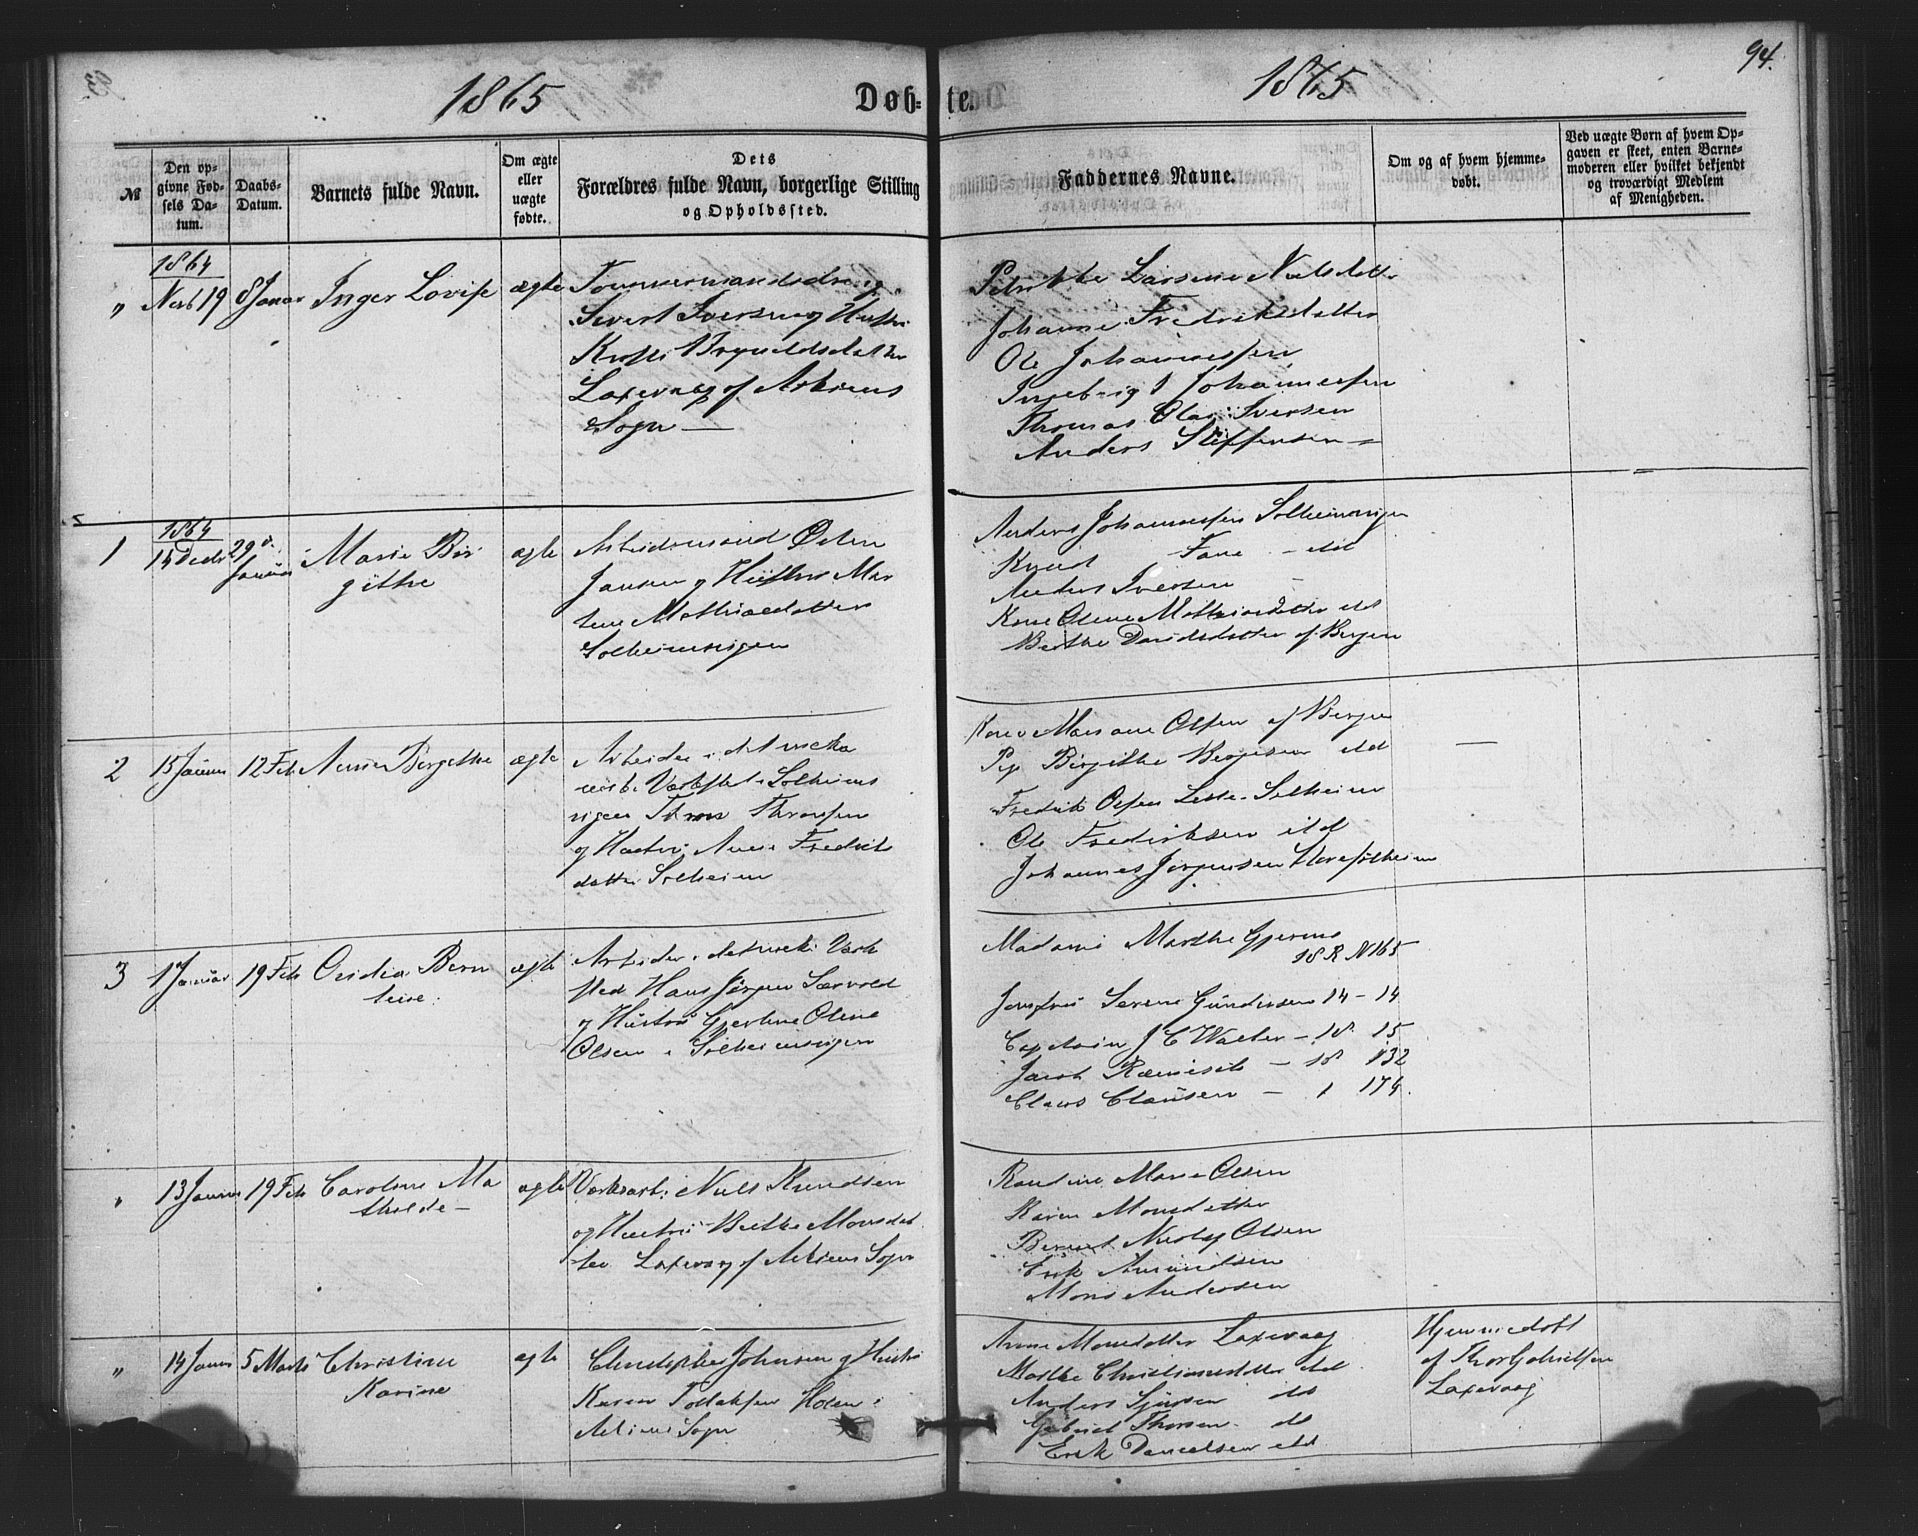 1865
Døb-
te.
1865
94.
№
Den op-
givne Fød-
sels Da-
tum.
Daabs-
Datum.
Barnets fulde Navn.
Om ægte
eller
uægte
fødte.
Dets
Forældres fulde Navn, borgerlige Stilling
og Opholdssted.
Faddernes Navne.
Om og af hvem hjemme-
døbt.
Ved uægte Børn af hvem Op-
gaven er skeet, enten Barne-
moderen eller hvilket bekjendt
og troværdigt Medlem
af Menigheden.
"
1864
19
8 Januar
Inger Lovise
ægte
Tømmermandsdreng
Sivert Iversen og Hustru
Brynildsdatter
Laxevaag af Askøens
Sogn —
Petrikke Larsine Nielsdatter
Johanne Fredriksdatter
Ole Johannessen
Ingebrigt Johannessen
Thomas Olai Iversen
Anders Steffensen
1
1864
29 d.
Januar
Marie Bir
githe
ægte
Arbeidsmand Østen
Jansen og Hustru Mar
tine Mathiasdatter
Solheimsvigen
Anders Johannessen Solheimsvigen
Knud Fane - itd
Anders Iversen
Kone Olene Mathiasdatter itd
Berthe Davidsdatter af Bergen
2
15 Januar
12 Feb
Anne Birgithe
ægte
Arbeider i det mecha
niske Værksted i Solheims
vigen Thron Thronsen
og Hustru Anne Fredriks
datter Solheim
Kone Mariane Olsen af Bergen
Pige Birgithe Bergesen itd
Fredrik Olsen Lille Solheim
Ole Fredriksen itd
Johannes Jørgensen Storesolheim
3
1 Januar
19 Feb
Ovidia Bern
tine
ægte
Arbeider i det mek: Værk
sted Hans Jørgen Særvold
og Hustru Gjertine Olene
Olsen i Solheimsvigen
Madame Marthe Gjerme
18 R N 165
Jomfru Serene Gundersen 14 - 14
Captain J C Walter - 18 15
Jacob - 18 132
Claus Clausen - 1 174.
"
13 Januar
19 Feb
Caroline Ma
thilde -
ægte
Værksarb: Niels Knudsen
og Hustru Berthe Monsdat
ter Laxevaag af Askøens Sogn
Randine Marie Olsen
Karen Monsdatter
Bernt Nicolay Olsen
Erik Amundsen
Mons Andersen
"
14 Januar
5 Marts
Christine
Karine
ægte
Christopher Johnsen og Hustru
Karen Tollaksen Holen i
Askøens Sogn
Anne Monsdatter Laxevaag
Marthe Christiansdatter itd
Anders Sjursen itd
Gabriel Thorsen itd
Erik Danielsen itd
Hjemmedøbt
af Thor Gabrielsen
Laxevaag